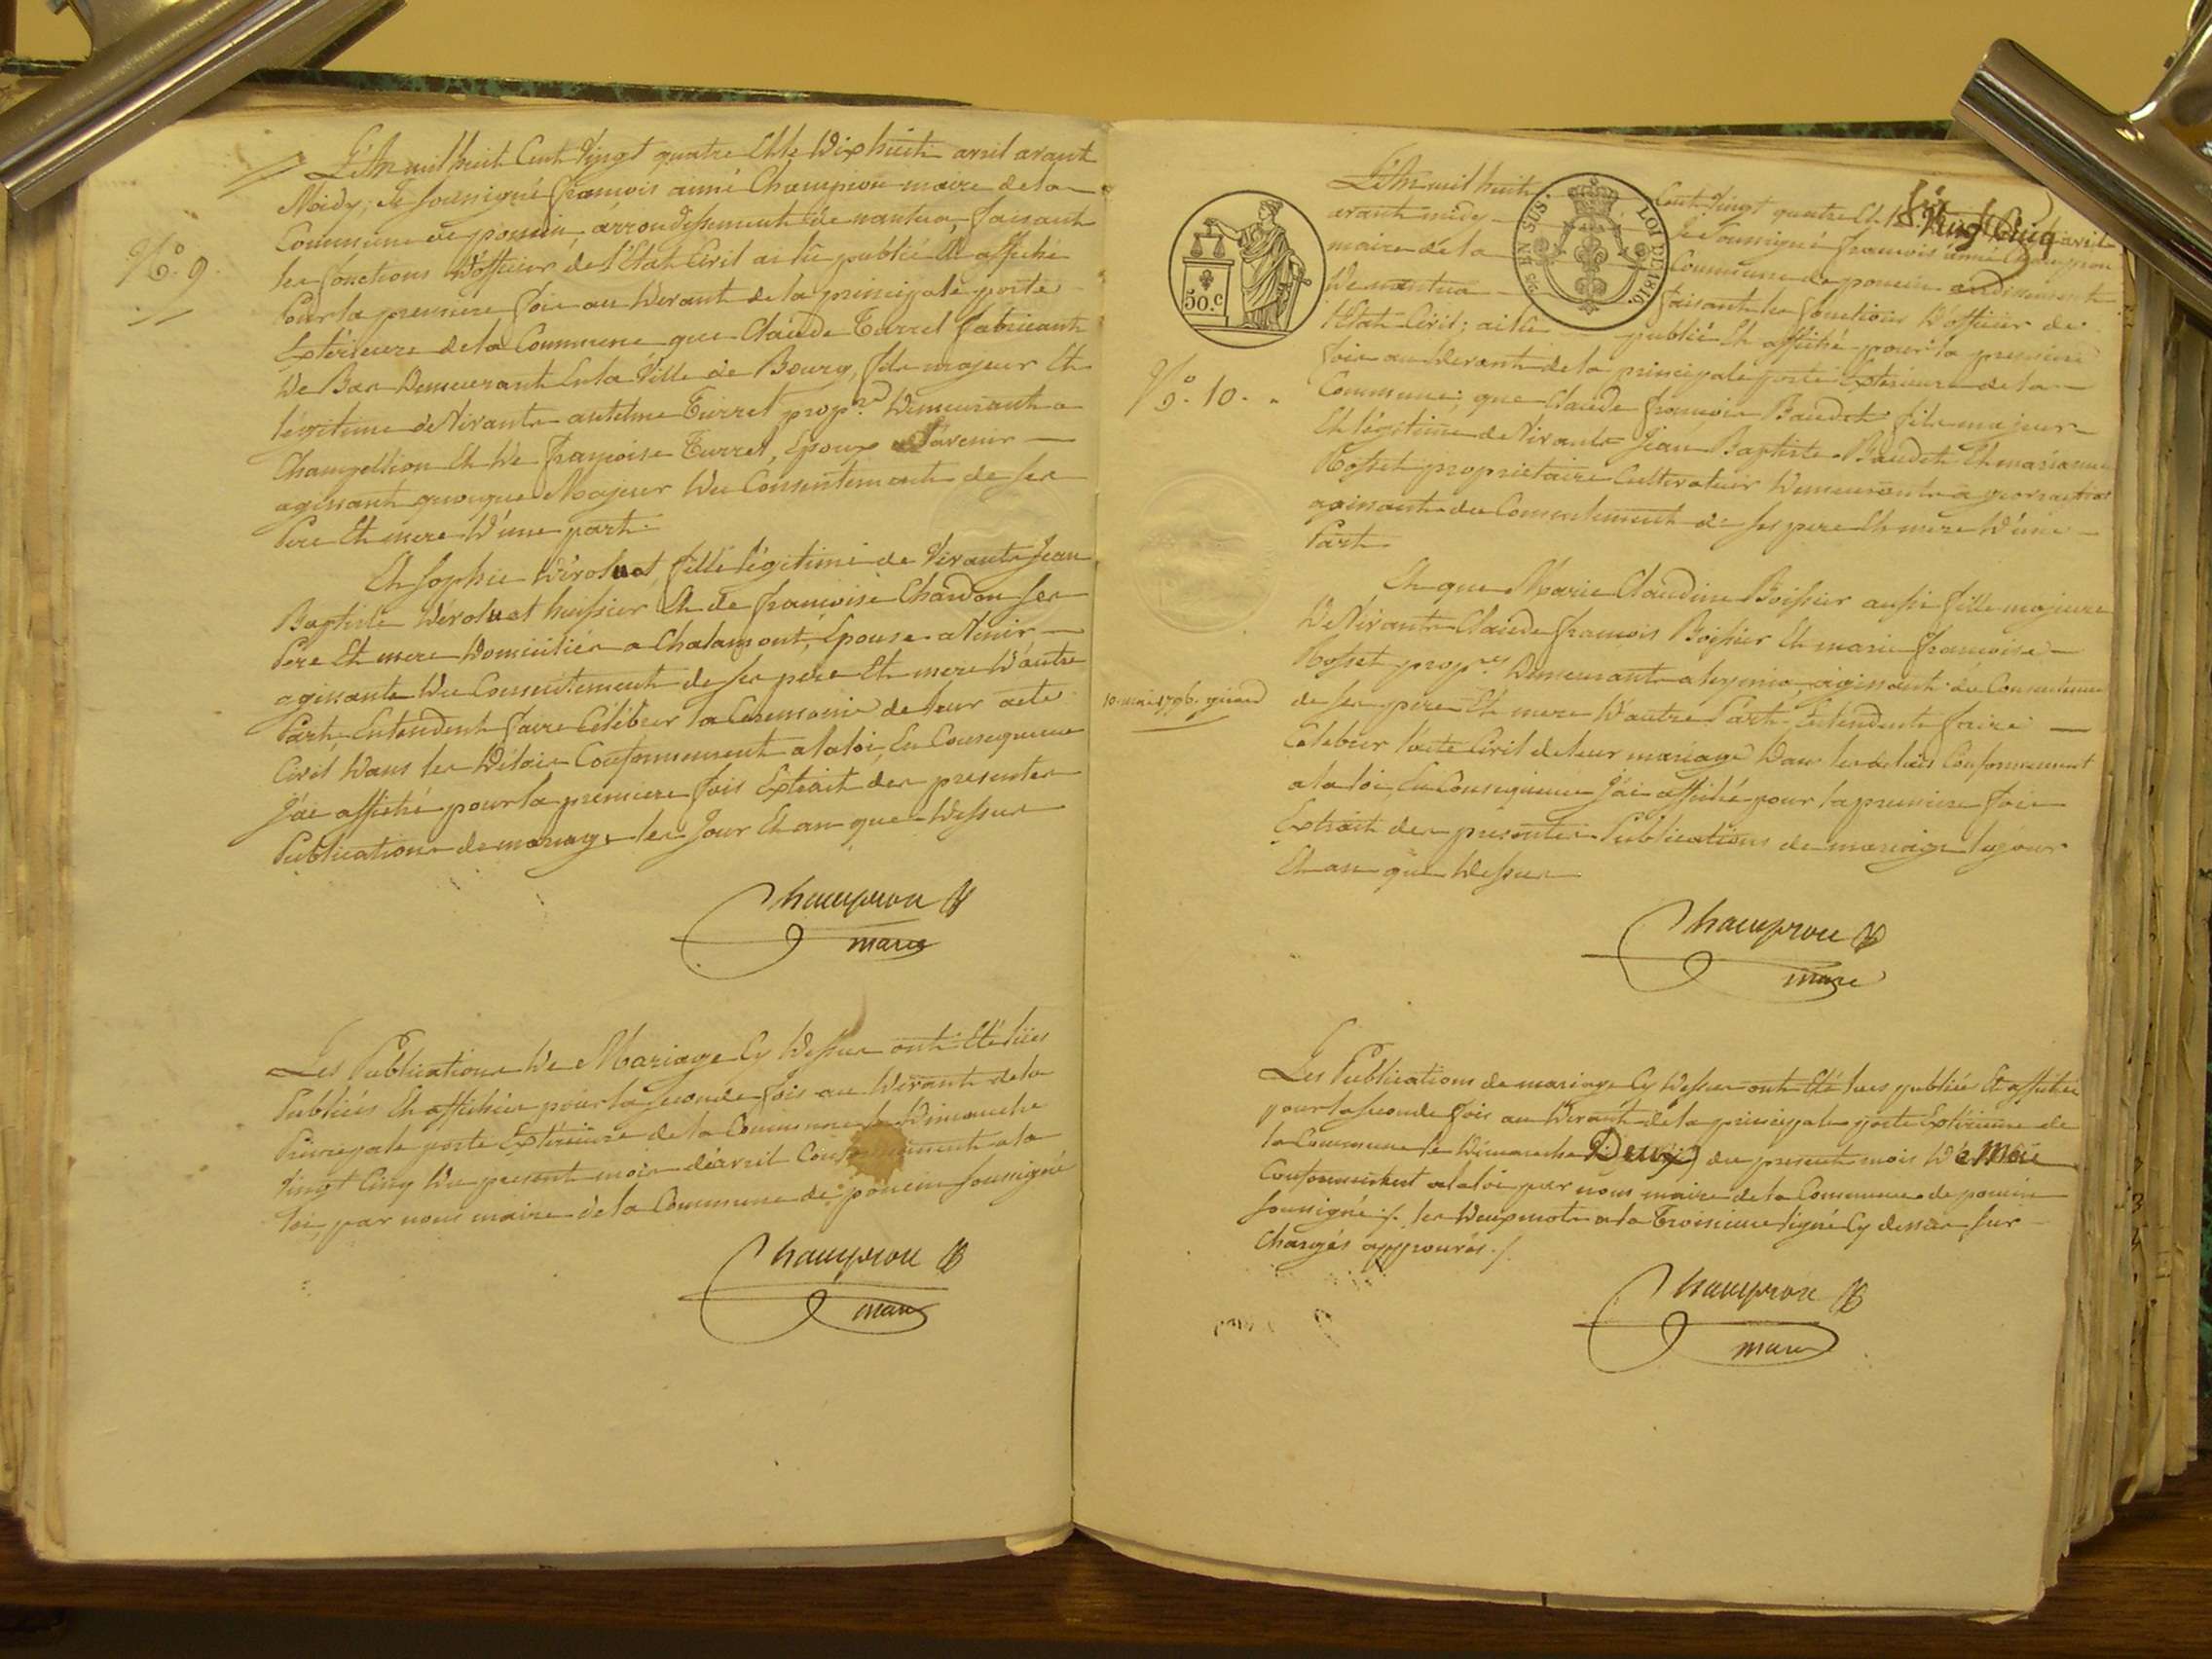 N.o 9.
L'An mil huit Cent Vingt quatre Et le Dix huit avril avant
Midy, Je soussigné françois aimé Champion maire de la
Commune de poncin, arrondissement de nantua, faisant
les fonctions D'officier de l'Etat Civil ai lû publié Et affiché
Pour la premiere fois au Devant de la principale porte
Extérieure de la Commune que Claude Turrel fabricant
De Bas Demeurant En la Ville de Bourg, fils majeur Et
légitime de Vivants antelme Turrel prop.re Demeurant a
Et De françoise Turrel, Epoux a Avenir
agissant quoique Majeur Du Consentement de ses
Pere Et mere D'une part.
Et Sophie fille légitime de Vivants Jean
Baptiste huissier Et de françoise Chardon ses
Pere Et mere Domiciliés a Chalamont, Epouse a Venir
agissante Du Consentement de ses pere Et mere D'autre
Part, Entendent faire Célébrer la Ceremonie de leur acte
Civil Dans les Délais Conformement a la loi, En Consequence
J'ai affiché pour la premiere fois Extrait des presentes
Publications de mariage les Jour Et an que Dessus
Champion
maire
Les Publications De Mariage Cy Dessus ont Eté lües
Publiées Et affichées pour la seconde fois au Devant de la
Principale porte Extérieure de la Commune le Dimanche
Vingt Cinq Du present mois d'avril Conformement a la
loi, par nous maire de la Commune de poncin soussigné
Champion
maire
50.c
5/c EN SUS. LOI DE 1816.
N.o 10.
10. mai 1796.
L'An mil huit Cent Vingt quatre Et le Vingt Cinq avril
avant midy Je Soussigné françois aimé Champion
maire de la Commune de poncin arrondissement
De nantua faisant les fonctions D'officier de
l'Etat Civil; ai lû publié Et affiché pour la premiere
fois au Devant de la principale porte Extérieure de la
Commune; que Claude françois Baudet fils majeur
Et légitime de Vivants Jean Baptiste Baudet Et marianne
Rosset proprietaire Cultivateur Demeurants a
agissant du Consentement de ses pere Et mere D'une
Part.
Et que Marie Claudine Boissier aussi fille majeure
De Vivants Claude françois Boissier Et marie françoise
Rosset prop.res Demeurants a agissant du Consentement
de ses pere Et mere D'autre Part Entendent faire
Celebrer l'acte Civil de leur mariage Dans les delais Conformement
a la loi, En Consequence J'ai affiché pour la premiere fois
Extrait des presentes Publications de mariage les jour
Et an que Dessus
Champion
maire
Les Publications de mariage Cy Dessus ont Eté lues publiées Et affichées
pour la seconde fois au Devant de la principale porte Extérieure de
la Commune le Dimanche Deux du present mois De Mai
Conformement a la loi par nous maire de la Commune de poncin
soussigné ;/. les Deux mots a la Troisieme ligne Cy dessus sur
Chargés approuvés ./.
Champion
maire